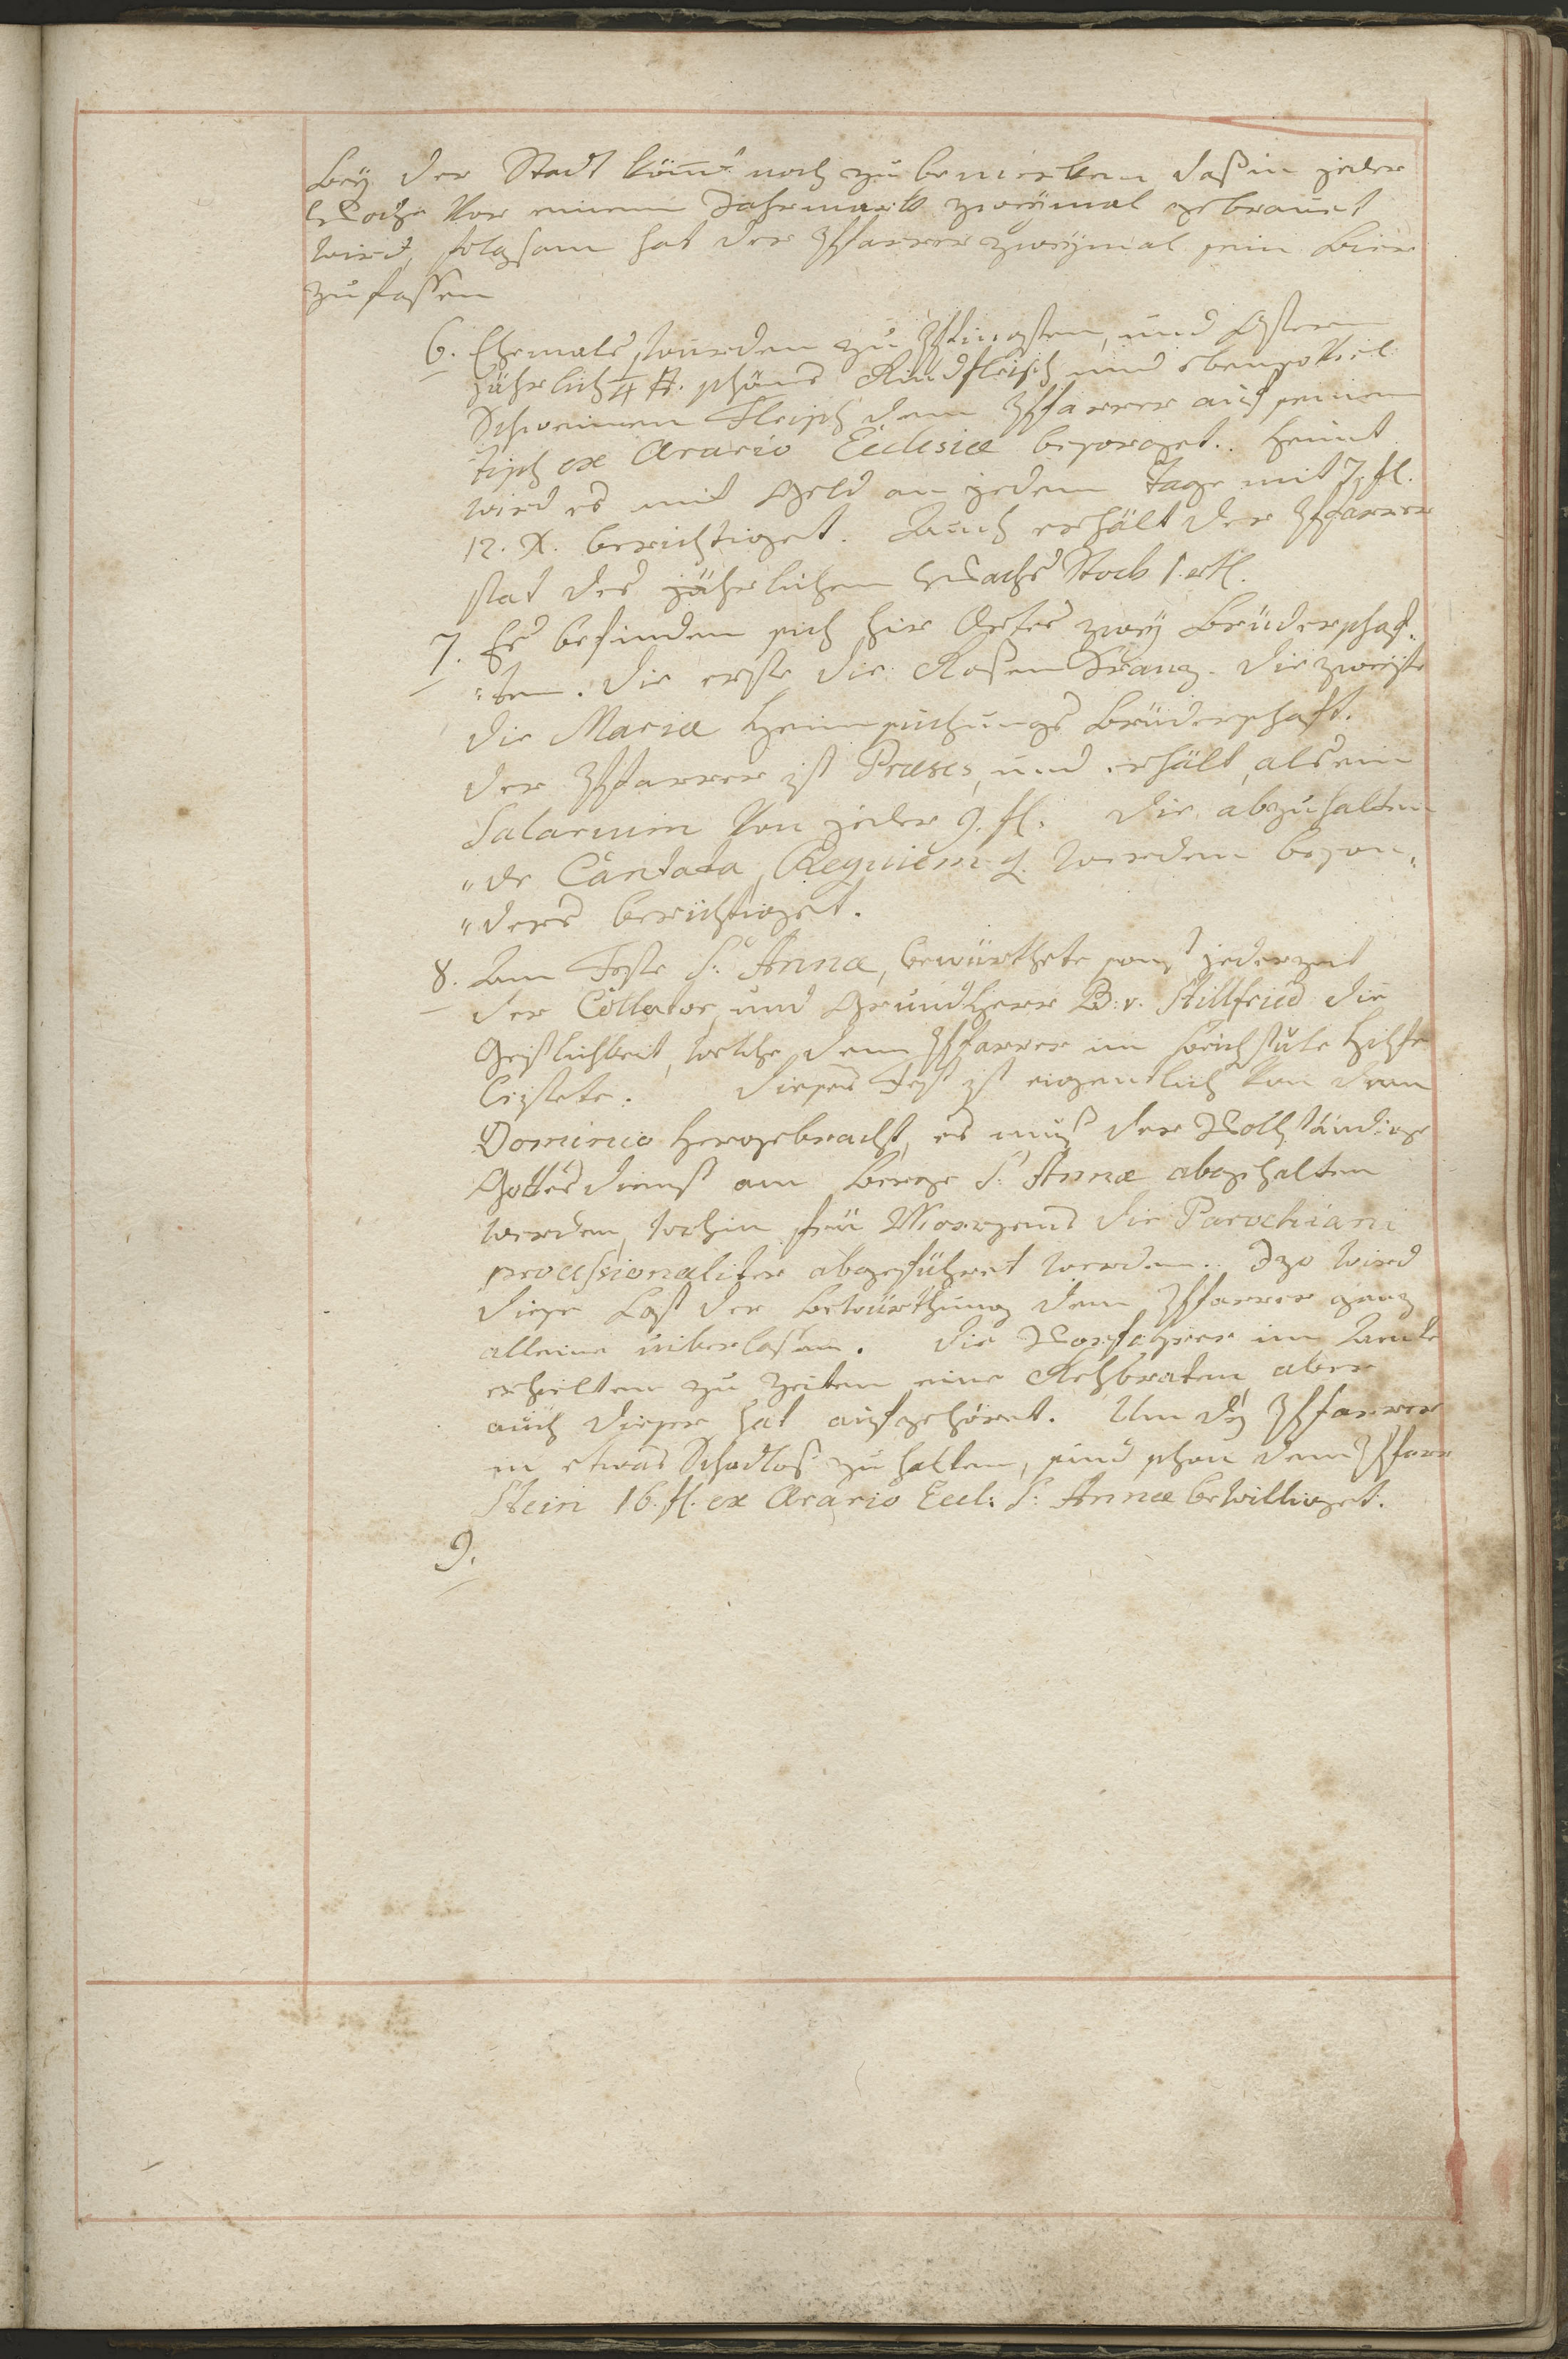 Bey der Stadt kömt noch zu bemerken daß in jeder
Woche vor einem Jahrmarkt zweymal gebrauet
wird, folgsam hat der Pfarrer zweymal sein Bier
zu fassen
6. Ehemals wurden zu Pfingsten, und Ostern
jährlich 1/4 schönes Rindfleisch und ebensoviel
Schweinen Fleisch dem Pfarrer auf seinen
Tisch ex Ærario Ecclesiæ besorget. Heunt
wird es mit Geld an jedem Tage mit 7 fl.
12. X. berichtiget. Auch erhält der Pfarrer
stat des jährlichen Wachs Stock 1. rtl.
7. Es befinden sich hir Ortes zwey Bruderschaf„
„ten. Die erste die Rosen Kranz. Die zweyte
die Mariæ Heimsuchungs Bruderschaft.
Der Pfarrer ist Præses, und erhält, als ein
Salarium von jeder 9. fl. Die abzuhalten
„de Cantata, Requiem werden beson„
„ders berichtiget.
8. Am Feste S: Annæ, bewürthete sonst jederzeit
der Collator, und Grund Herr B: v. Stillfried die
Geistlichkeit, welche dem Pfarrer im Beichstule Hilfe
leistete. Dieses Fest ist eigentlich von dem
Dominio hergebracht, es muß der Vollständige
Gottesdienst am Berge S: Annæ abgehalten
werden, wohin frü Morgens die Parochiani
processionaliter abgeführet werden. Izo wird
diese Last der Bewürthung dem Pfarrer ganz
alleine überlaßen. Die Vorfahrer im Amte
erhielten zu Zeiten eine Rehbraten aber
auch dieser hat aufgehöret. Um den Pfarrer
in etwas Schadlos zu halten, sind schon dem Pfarr
Stein 16. fl. ex Ærario Eccl: S: Annæ bewilliget.
9.